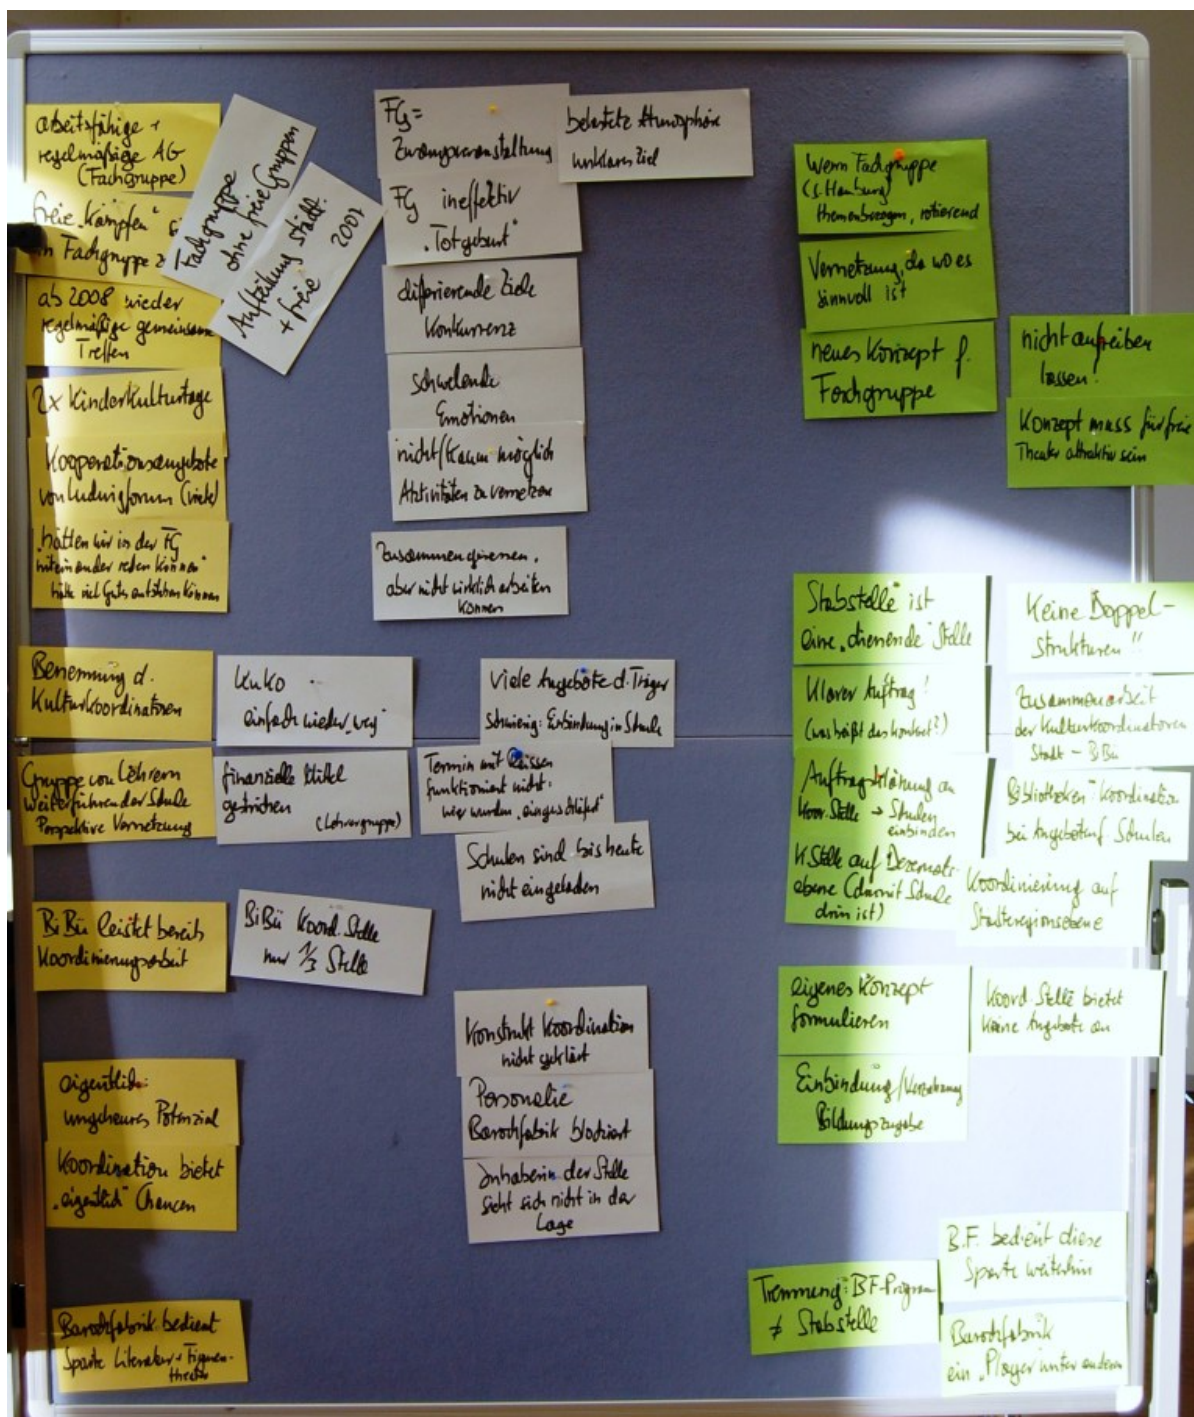 arbeitsfähige +
regelmäßige AG
(Fachgruppe)
freie „Kämpfen"
in Fachgruppe
ab 2008 wieder
regelmäßige gemeinsame
Treffen
2x Kinderkulturtage
Kooperationsangebote
von Ludwigforum (viele)
„hätten wir in der FG
miteinander reden können"
hätte viel Gutes entstehen können
Fachgruppe
ohne freie Gruppen
Aufteilung städt.
+ freie 2007
FG =
Zwangsveranstaltung
FG ineffektiv
„Totgeburt"
differierende Ziele
Konkurrenz
schwelende
Emotionen
nicht/kaum möglich
Aktivitäten zu vernetzen
Zusammengesessen,
aber nicht wirklich arbeiten
können
belastete Atmosphäre
unklares Ziel
Wenn Fachgruppe
(s. Hamburg)
themenbezogen, rotierend
Vernetzung, da wo es
sinnvoll ist
neues Konzept f.
Fachgruppe
nicht aufreiben
lassen!
Konzept muss für freie
Theater attraktiv sein
Benennung d.
Kulturkoordinatoren
KuKo
einfach wieder „weg"
Gruppe von Lehrern
weiterführender Schule
Perspektive Vernetzung
finanzielle Mittel
gestrichen
(Lehrergruppe)
viele Angebote d. Träger
schwierig: Einbindung in Schule
Termin mit
funktioniert nicht.
wir wurden
Schulen sind bis heute
nicht eingeladen
BiBü leistet bereits
Koordinierungsarbeit
BiBü Koord. Stelle
nur 1/3 Stelle
Stabstelle ist
eine „dienende" Stelle
Klarer Auftrag!
(was heißt das konkret?)
Auftragsklärung an
Koor. Stelle → Schulen
einbinden
K Stelle auf Dezernats-
ebene (damit Schule
drin ist)
Keine Doppel-
strukturen!!
Zusammenarbeit
der Kulturkoordinatoren
Stadt – BiBü
Bibliotheken-Koordination
bei Angebot auf Schulen
Koordinierung auf
Städteregionsebene
eigentlich
ungeheures Potenzial
Koordination bietet
„eigentlich" Chancen
Konstrukt Koordination
nicht geklärt
Personalie
Barockfabrik blockiert
Inhaberin der Stelle
sieht sich nicht in der
Lage
eigenes Konzept
formulieren
Einbindung/Verzahnung
Bildungszugabe
Koord. Stelle bietet
keine Angebote an
Barockfabrik bedient
Sparte Literatur + Figuren-
theater
Trennung: BF-Program
≠ Stabstelle
B.F. bedient diese
Sparte weiterhin
Barockfabrik
ein „Player unter anderen